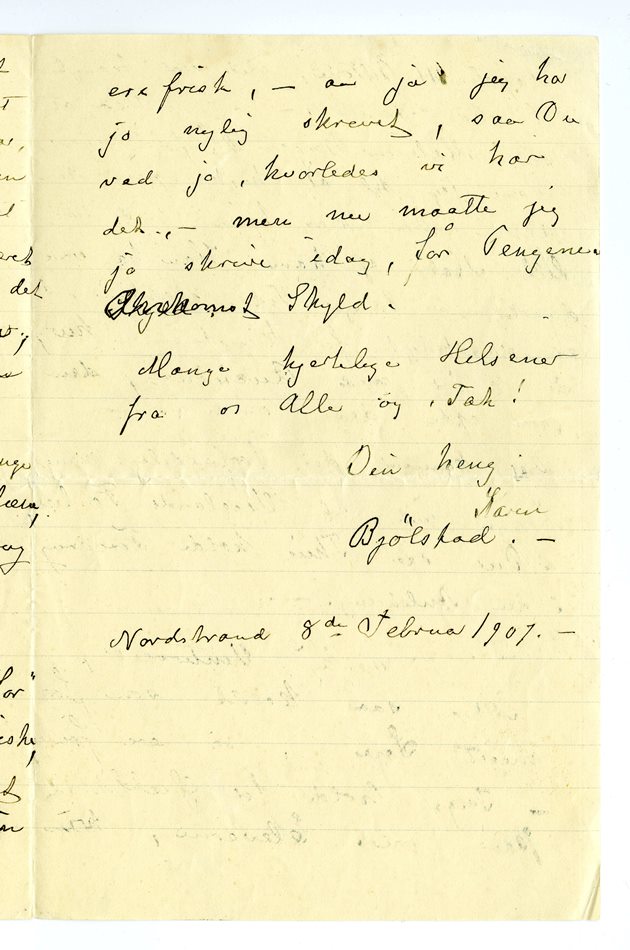 er frisk, — aa ja! jeg har
jo nylig skrevet, saa Du
ved jo, hvorledes vi har
det, — men nu maatte jeg
jo skrive idag, for Pengenes
Skyld.
Mange hjertelige Helsener
fra os Alle og Tak!
Din heng.
Karen
Bjölstad. —
Nordstrand 8de Februar 1907. —
det